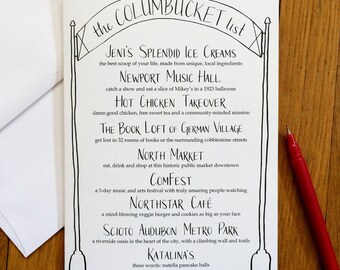 the COLUMBUCKET list
JENI'S SPLENDID ICE CREAMS
the best scoop of your life, made from unique, local ingredients
NEWPORT MUSIC HALL
catch a show and eat a slice of Mikey's in a 1923 ballroom
HOT CHICKEN TAKEOVER
damn good chicken, free sweet tea and a community-minded mission
THE BOOK LOFT OF GERMAN VILLAGE
get lost in 32 rooms of books or the surrounding cobblestone streets
NORTH MARKET
eat, drink and shop at this historic public market downtown
COMFEST
a 3-day music and arts festival with truly amazing people-watching
NORTHSTAR CAFÉ
a mind-blowing veggie burger and cookies as big as your face
SCIOTO AUDUBON METRO PARK
a riverside oasis in the heart of the city, with a climbing wall and trails
KATALINA'S
three words: nutella pancake balls